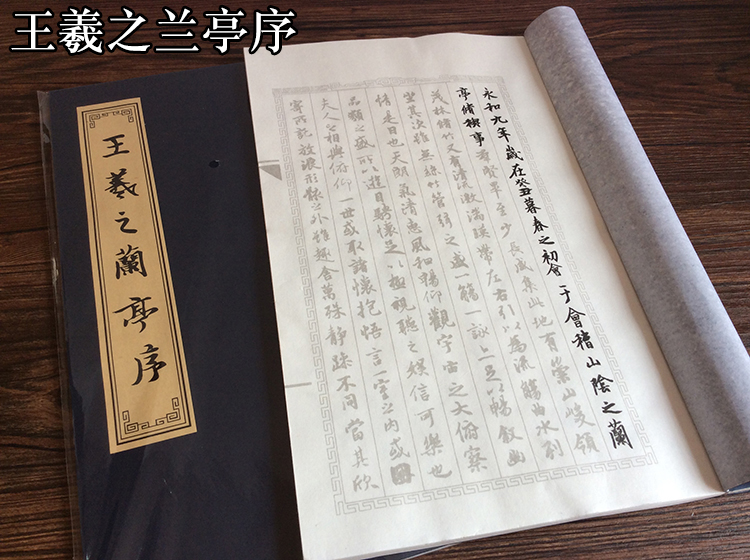 王羲之兰亭序
王羲之蘭亭序
永和九年歲在癸丑暮春之初會于會稽山陰之蘭
亭脩稧事也羣賢畢至少長咸集此地有崇山峻領
茂林脩竹又有清流激湍暎帶左右引以為流觴曲水列
坐其次雖無絲竹管弦之盛一觴一詠亦足以暢敘幽
情是日也天朗氣清惠風和暢仰觀宇宙之大俯察
品類之盛所以遊目騁懷足以極視聽之娛信可樂也
夫人之相與俯仰一世或取諸懷抱悟言一室之內或因
寄所託放浪形骸之外雖趣舍萬殊靜躁不同當其欣